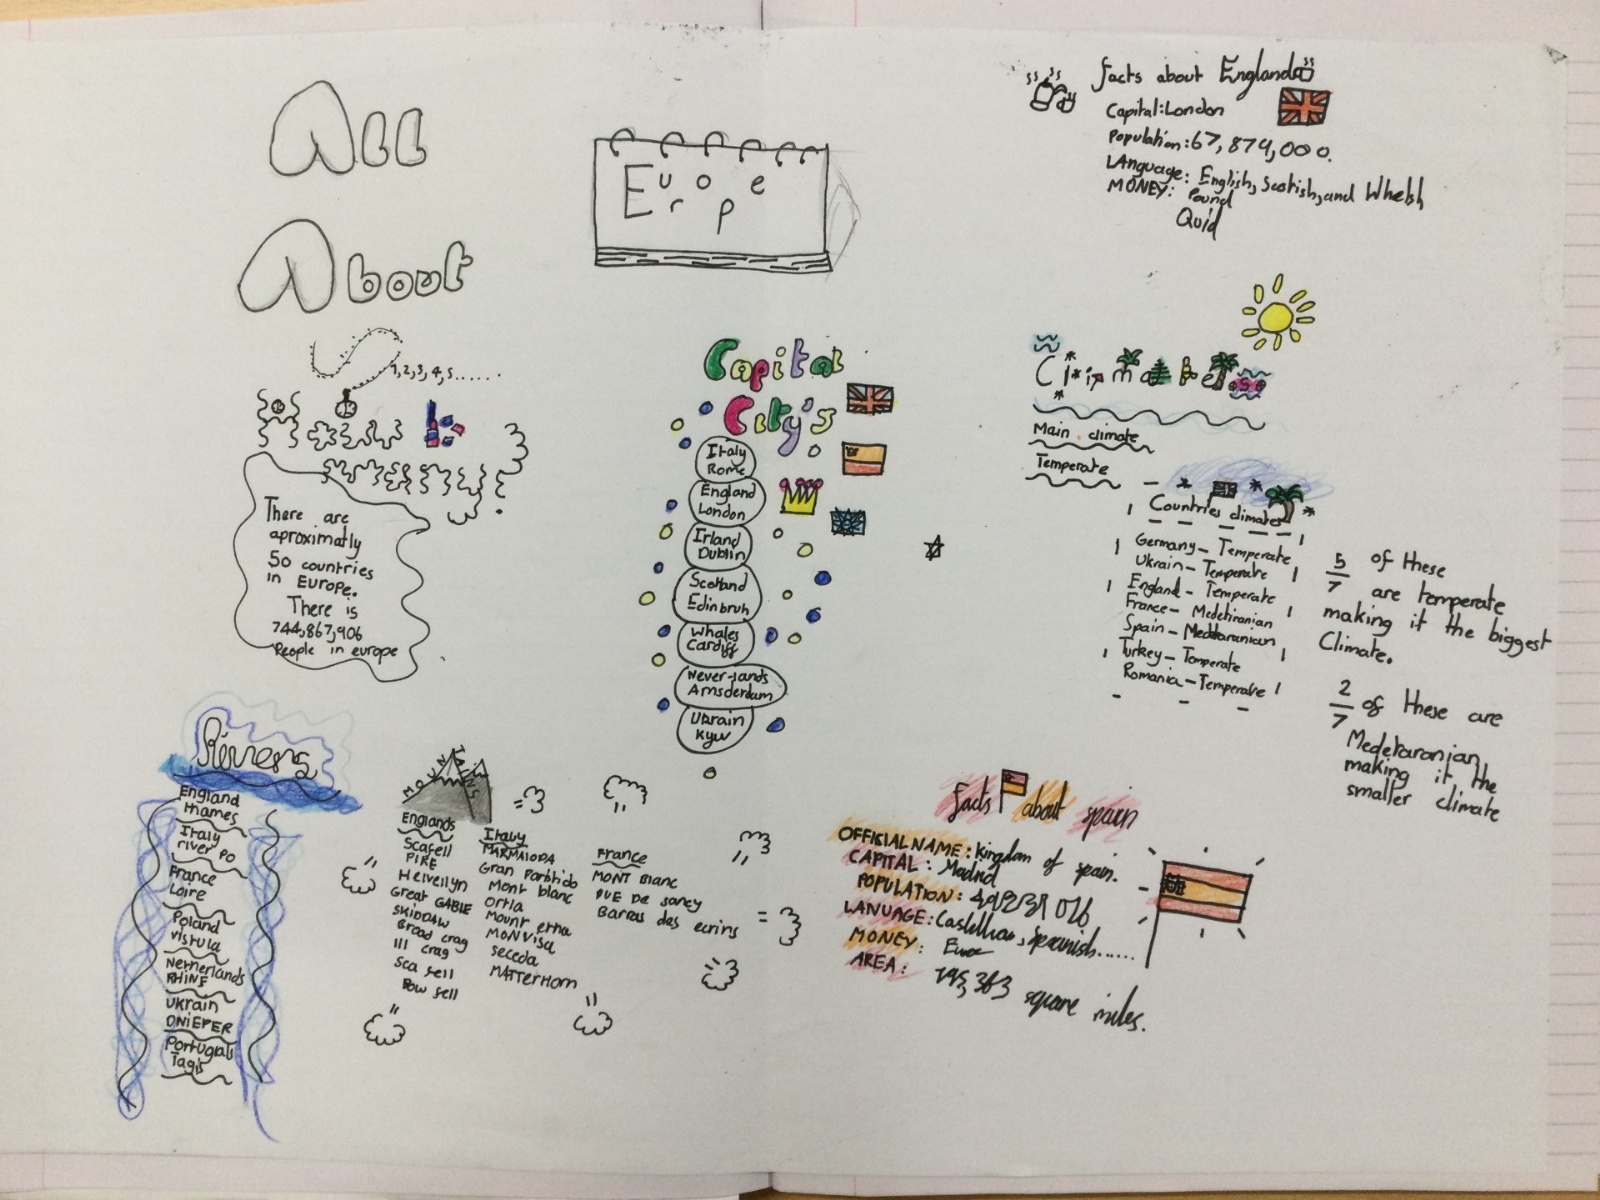 All
About
Europe
1,2,3,4,5......
There are
aproximatly
50 countries
in Europe.
There is
744,867,906
People in europe
Capital
City's
Italy
Rome
England
London
Irland
Dublin
Scotland
Edinbruh
Whales
Cardiff
Never-lands
Amsderdam
Ukrain
Kyiv
facts about England
Capital:London
Population:67,879,000.
LAnguage: English, Scotish, and Whelsh
MONEY: Pound
Quid
Climates
Main climate
Temperate
Countries climates
Germany - Temperate
Ukrain - Temperate
England - Temperate
France - Medetiranian
Spain - Meddaranian
Turkey - Temperate
Romania - Temperate
5/7 of these
are temperate
making it the biggest
Climate.
2/7 of these are
Medetaranian
making it the
smaller climate
Rivers
England
thames
Italy
river po
France
Loire
Poland
vistula
Netherlands
RHINE
Ukrain
DNIEPER
Portugals
Tagis
MOUNTAINS
Englands
Scafell
PIKE
Helvellyn
Great GABLE
SKIDDAW
Broad crag
Ill crag
Sca fell
Bow fell
Italy
MARMALODA
Gran Paridido
Mont blanc
Ortla
Mount etna
MONVisa
seceda
MATTERHorn
France
MONT Blanc
PUE DE sancy
Barras das ecrins
facts about spain
OFFICIAL NAME: Kingdom of spain.
CAPITAL: Madrid
POPULATION:
LANUAGE: Castellano, Spanish......
MONEY: Euro
AREA: square miles.